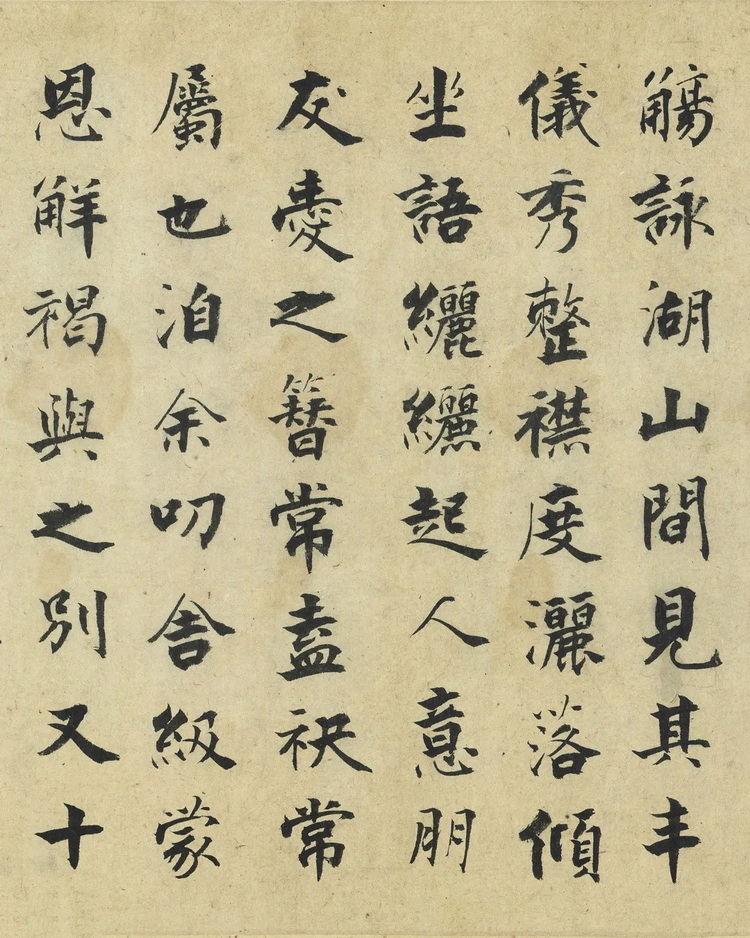 觴詠湖山間見其丰
儀秀整襟度灑落傾
坐語纚纚起人意朋
友憂之簪常盍袂常
屬也洎余叨舍級蒙
恩解褐與之別又十